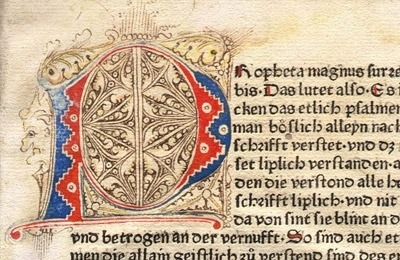 Propheta magnus surre
bis· Das lutet also· Es i
cken das etlich psalmen
man böslich alleyn nach
schrifft verstet· vnd dz
set liplich verstanden· a
den die verstond alle he
schrifft liplich· vnd nit
da von sint sie blint an d
vnd betrogen an der vernufft· So sind auch et
men die allain geistlich zů verstend sind des er